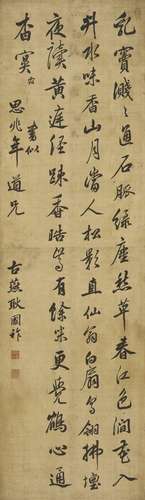 乳竇濺濺通石脈綠塵愁草春江色澗花入
井水味香山月當人松影直仙翁白扇鳥翎拂壇
夜讀黃庭經疎香皓齒有餘味更覺鶴心通
杳冥
書似
思兆年道兄
古燕耿國祚